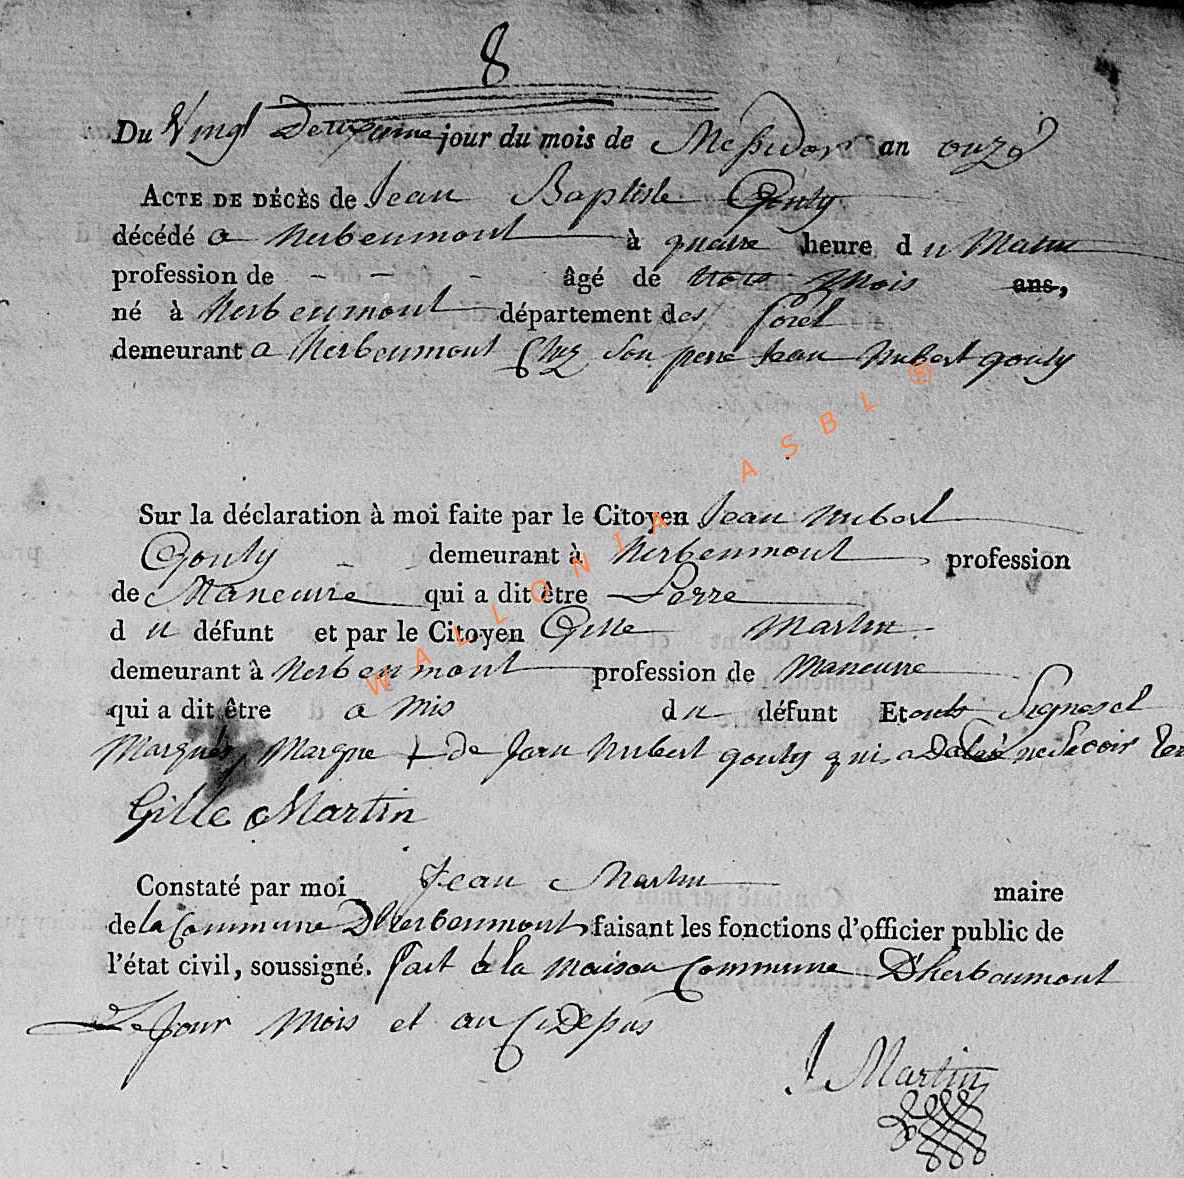 8
Du Vingt Deuxieme jour du mois de Messidor an onze
ACTE DE DÉCÈS de Jean Baptiste Gouty
décédé a herbeumont à quatre heure du Matin
profession de - - - âgé de trois Mois ans,
né à herbeumont département des foret
demeurant a herbeumont Chez son pere Jean hubert gouty
Sur la déclaration à moi faite par le Citoyen Jean hubert
Gouty - - demeurant à herbeumont profession
de Maneuvre qui a dit être Perre
du défunt et par le Citoyen Gille Martin
demeurant à herbeumont profession de maneuvre
qui a dit être a mis du défunt Et onts Signes et
Marques Marque + de Jean hubert gouty qui a
Gille Martin
Constaté par moi Jean Martin maire
de la Commune Dherbeumont faisant les fonctions d'officier public de
l'état civil, soussigné. fait à la maison Commune D'herbeumont
Le Jour Mois et an Ci Depus
J Martin
WALLONIA ASBL ®